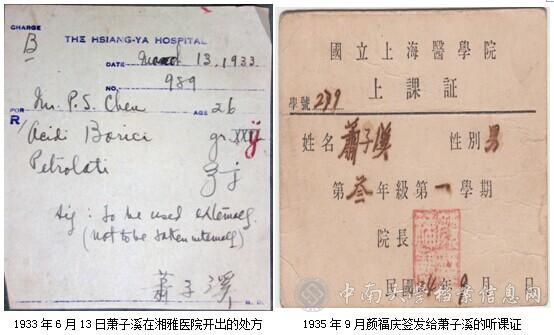 CHARGE
B
THE HSIANG-YA HOSPITAL
DATE March 13, 1933
NO. 989
FOR Mr. P. S. Chen AGE 26
R/
Acidi Borici gr. XXIV ij
Petrolati ℥j
Sig: To be used externally.
(not to be taken internally)
萧子溪
M. D.
國立上海醫學院
上課証
學號 279
姓名 蕭子溪 性別 男
第叁年級第一學期
院長
民國 24 年 9 月 日
中南大学档案信息网
1933年6月13日萧子溪在湘雅医院开出的处方
1935年9月颜福庆签发给萧子溪的听课证